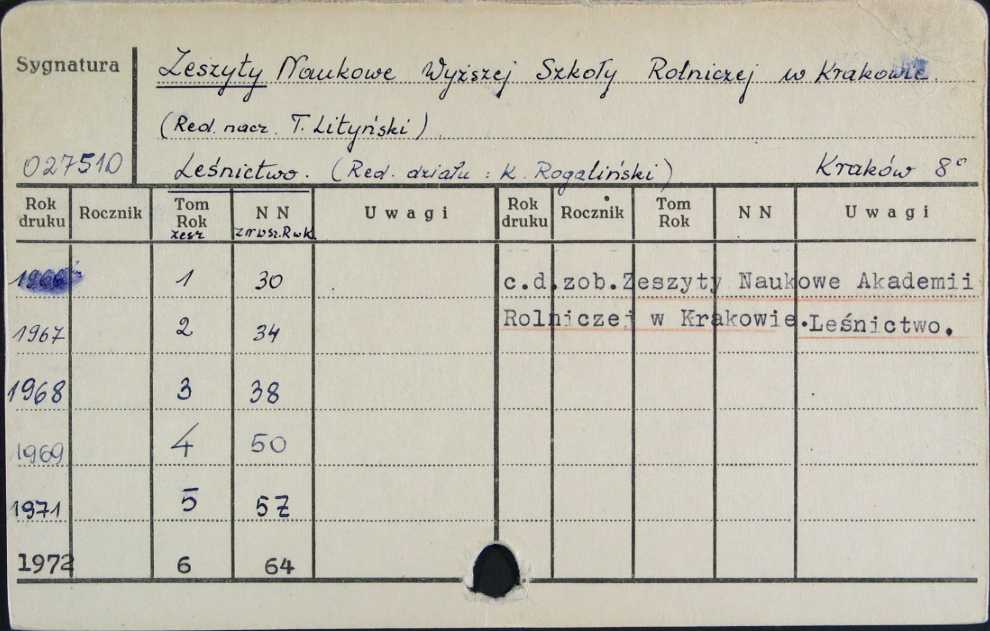 Sygnatura
Zeszyty Naukowe Wyższej Szkoły Rolniczej w Krakowie
(Red. nacz. T. Lityński)
027510 Leśnictwo. (Red. działu: K. Rogaliński) Kraków 8°
Rok druku Rocznik Tom Rok zesz NN Uwagi Rok druku Rocznik Tom Rok NN Uwagi
1966 1 30 c.d.zob.Zeszyty Naukowe Akademii
1967 2 34 Rolniczej w Krakowie.Leśnictwo.
1968 3 38
1969 4 50
1971 5 57
1972 6 64